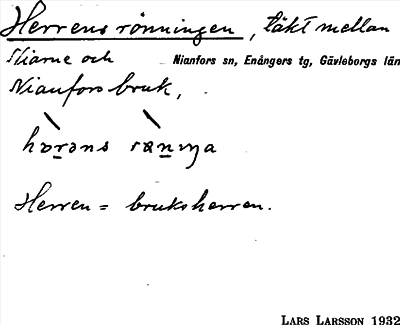 Herrens rönningen, täkt mellan
Stiarne och Nianfors sn, Enångers tg, Gävleborgs län
Nianfors bruk,
Herren = bruksherren.
LARS LARSSON 1932